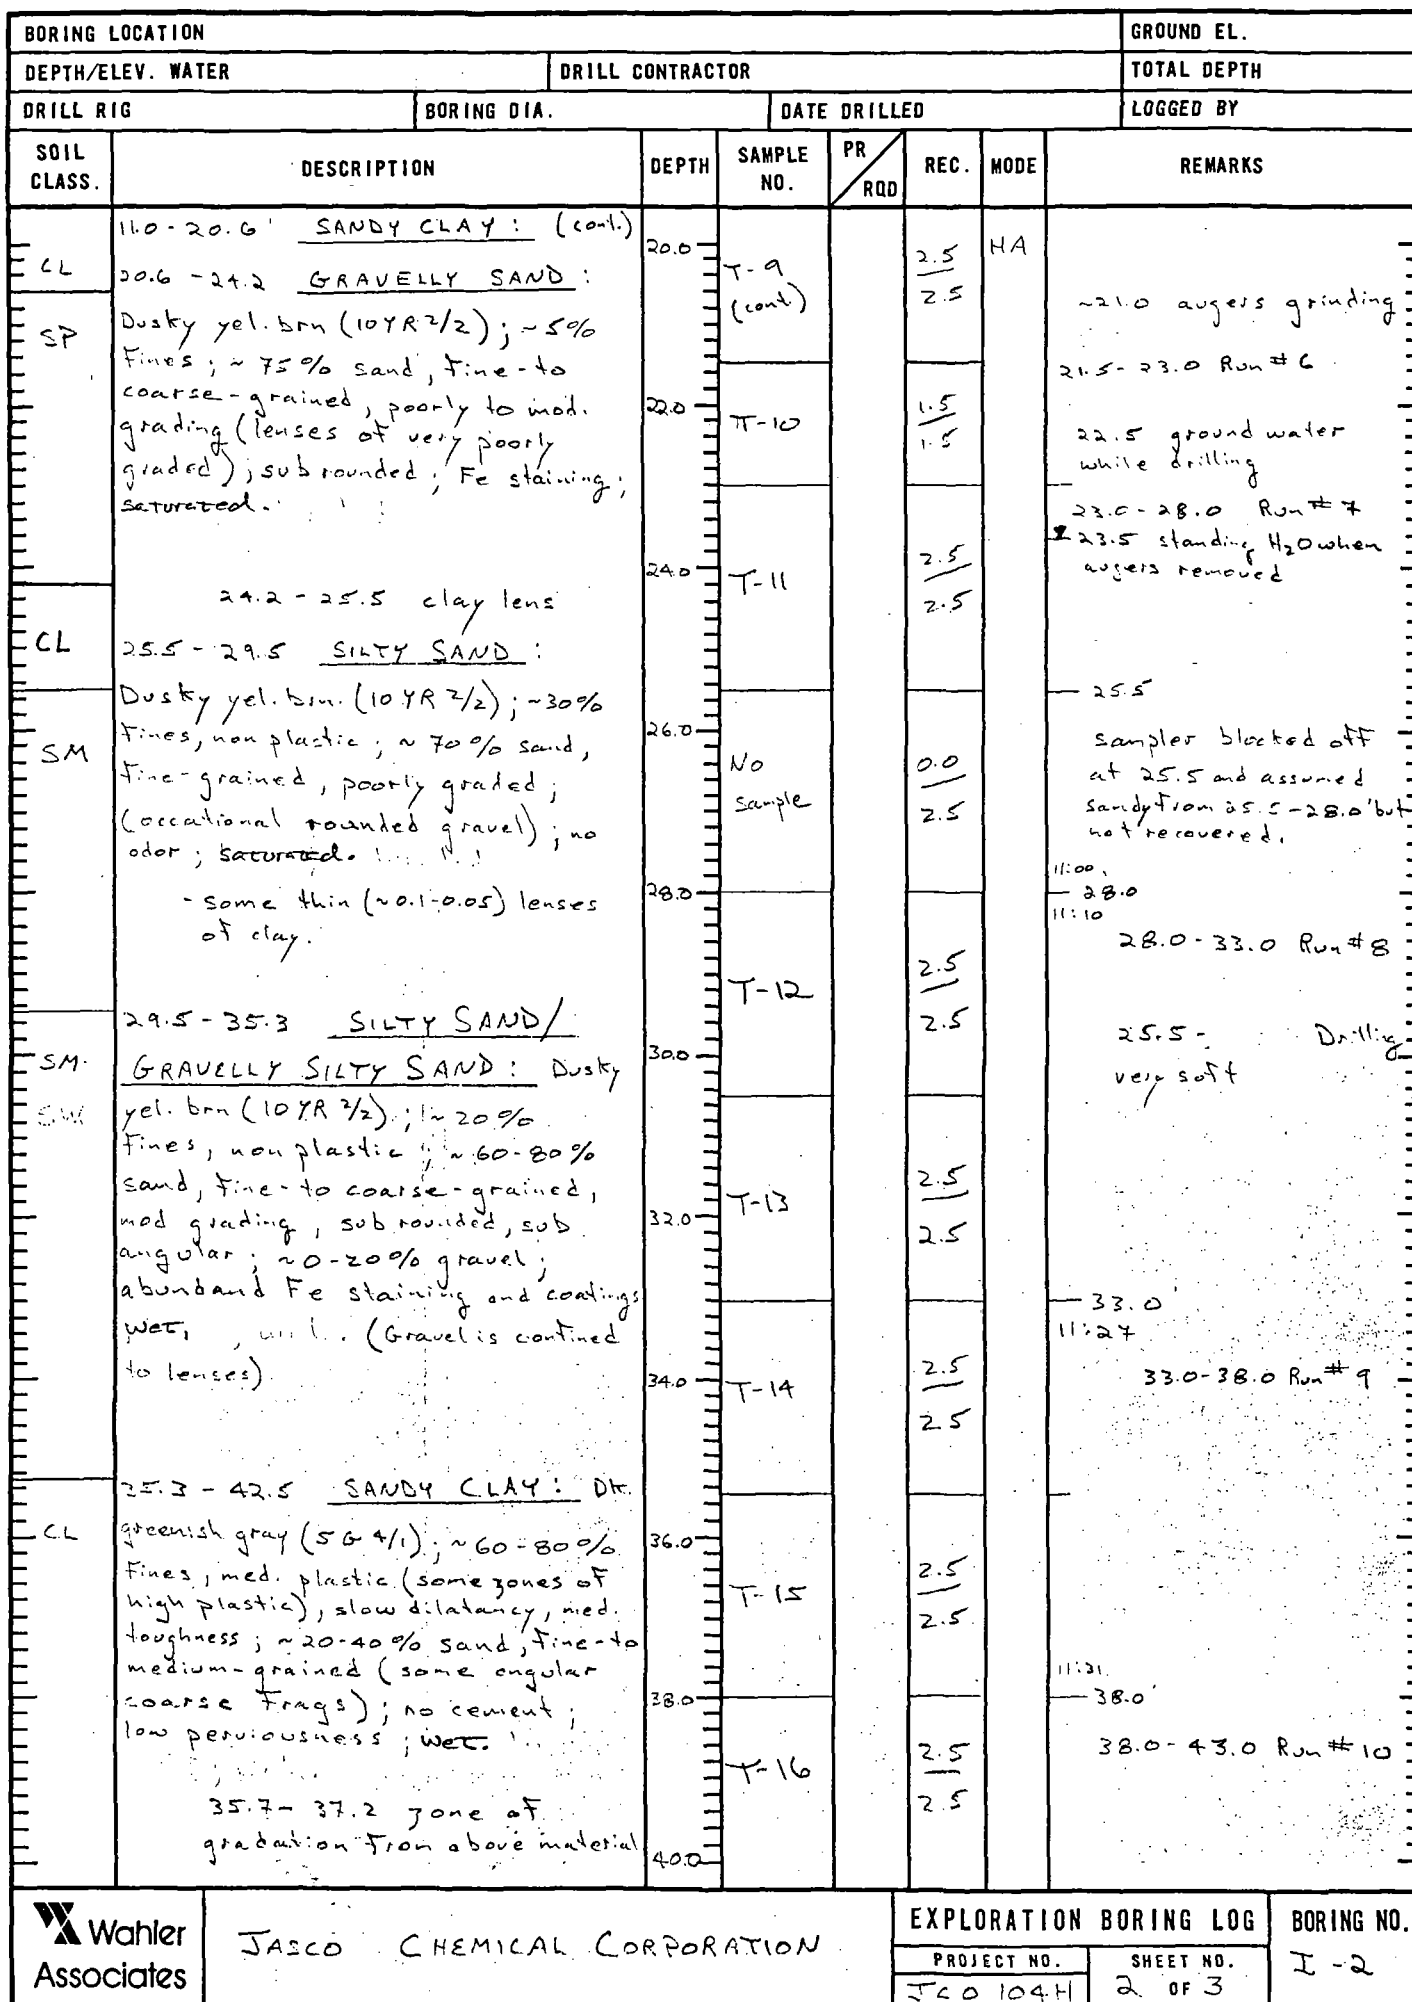 BORING LOCATION
GROUND EL.
DEPTH/ELEV. WATER
DRILL CONTRACTOR
TOTAL DEPTH
DRILL RIG
BORING DIA.
DATE DRILLED
LOGGED BY
SOIL CLASS.
DESCRIPTION
DEPTH
SAMPLE NO.
PR / RQD
REC.
MODE
REMARKS
11.0 - 20.6' SANDY CLAY: (cont.)
CL
20.6 - 24.2 GRAVELLY SAND:
SP
Dusky yel. brn (10YR 2/2); ~5%
Fines; ~75% sand, fine-to
coarse-grained, poorly to mod.
grading (lenses of very poorly
graded); sub rounded; Fe staining;
saturated.
24.2 - 25.5 clay lens
CL
25.5 - 29.5 SILTY SAND:
Dusky yel. brn. (10YR 2/2); ~30%
SM
Fines, non plastic; ~70% sand,
fine-grained, poorly graded;
(occational rounded gravel); no
odor; saturated.
- some thin (~0.1-0.05) lenses
of clay.
29.5 - 35.3 SILTY SAND/
SM
GRAVELLY SILTY SAND: Dusky
SW
yel. brn (10YR 2/2); ~20%
Fines, non plastic; ~60-80%
sand, fine-to coarse-grained,
mod grading, sub rounded, sub
angular; ~0-20% gravel;
abundand Fe staining and coatings
wet, (Gravel is confined
to lenses)
35.3 - 42.5 SANDY CLAY: Dk.
CL
greenish gray (5G 4/1); ~60-80%
Fines, med. plastic (some zones of
high plastic), slow dilatancy, med.
toughness; ~20-40% sand, fine-to
medium-grained (some angular
coarse frags); no cement;
low perviousness; wet.
35.7 - 37.2 zone of
gradation from above material
20.0
22.0
24.0
26.0
28.0
30.0
32.0
34.0
36.0
38.0
40.0
T-9
(cont.)
T-10
T-11
No
sample
T-12
T-13
T-14
T-15
T-16
2.5
2.5
1.5
1.5
2.5
2.5
0.0
2.5
2.5
2.5
2.5
2.5
2.5
2.5
2.5
2.5
2.5
2.5
HA
~21.0 augers grinding
21.5 - 23.0 Run #6
22.5 ground water
while drilling
23.0 - 28.0 Run #7
23.5 standing H2O when
augers removed
25.5
sampler blocked off
at 25.5 and assumed
sandy from 25.5 - 28.0' but
not recovered.
11:00
28.0
11:10
28.0 - 33.0 Run #8
25.5 - Drilling
very soft
33.0
11:27
33.0 - 38.0 Run #9
11:31
38.0'
38.0 - 43.0 Run #10
Wahler
Associates
JASCO CHEMICAL CORPORATION
EXPLORATION BORING LOG
BORING NO.
I-2
PROJECT NO.
JCO 104H
SHEET NO.
2 OF 3